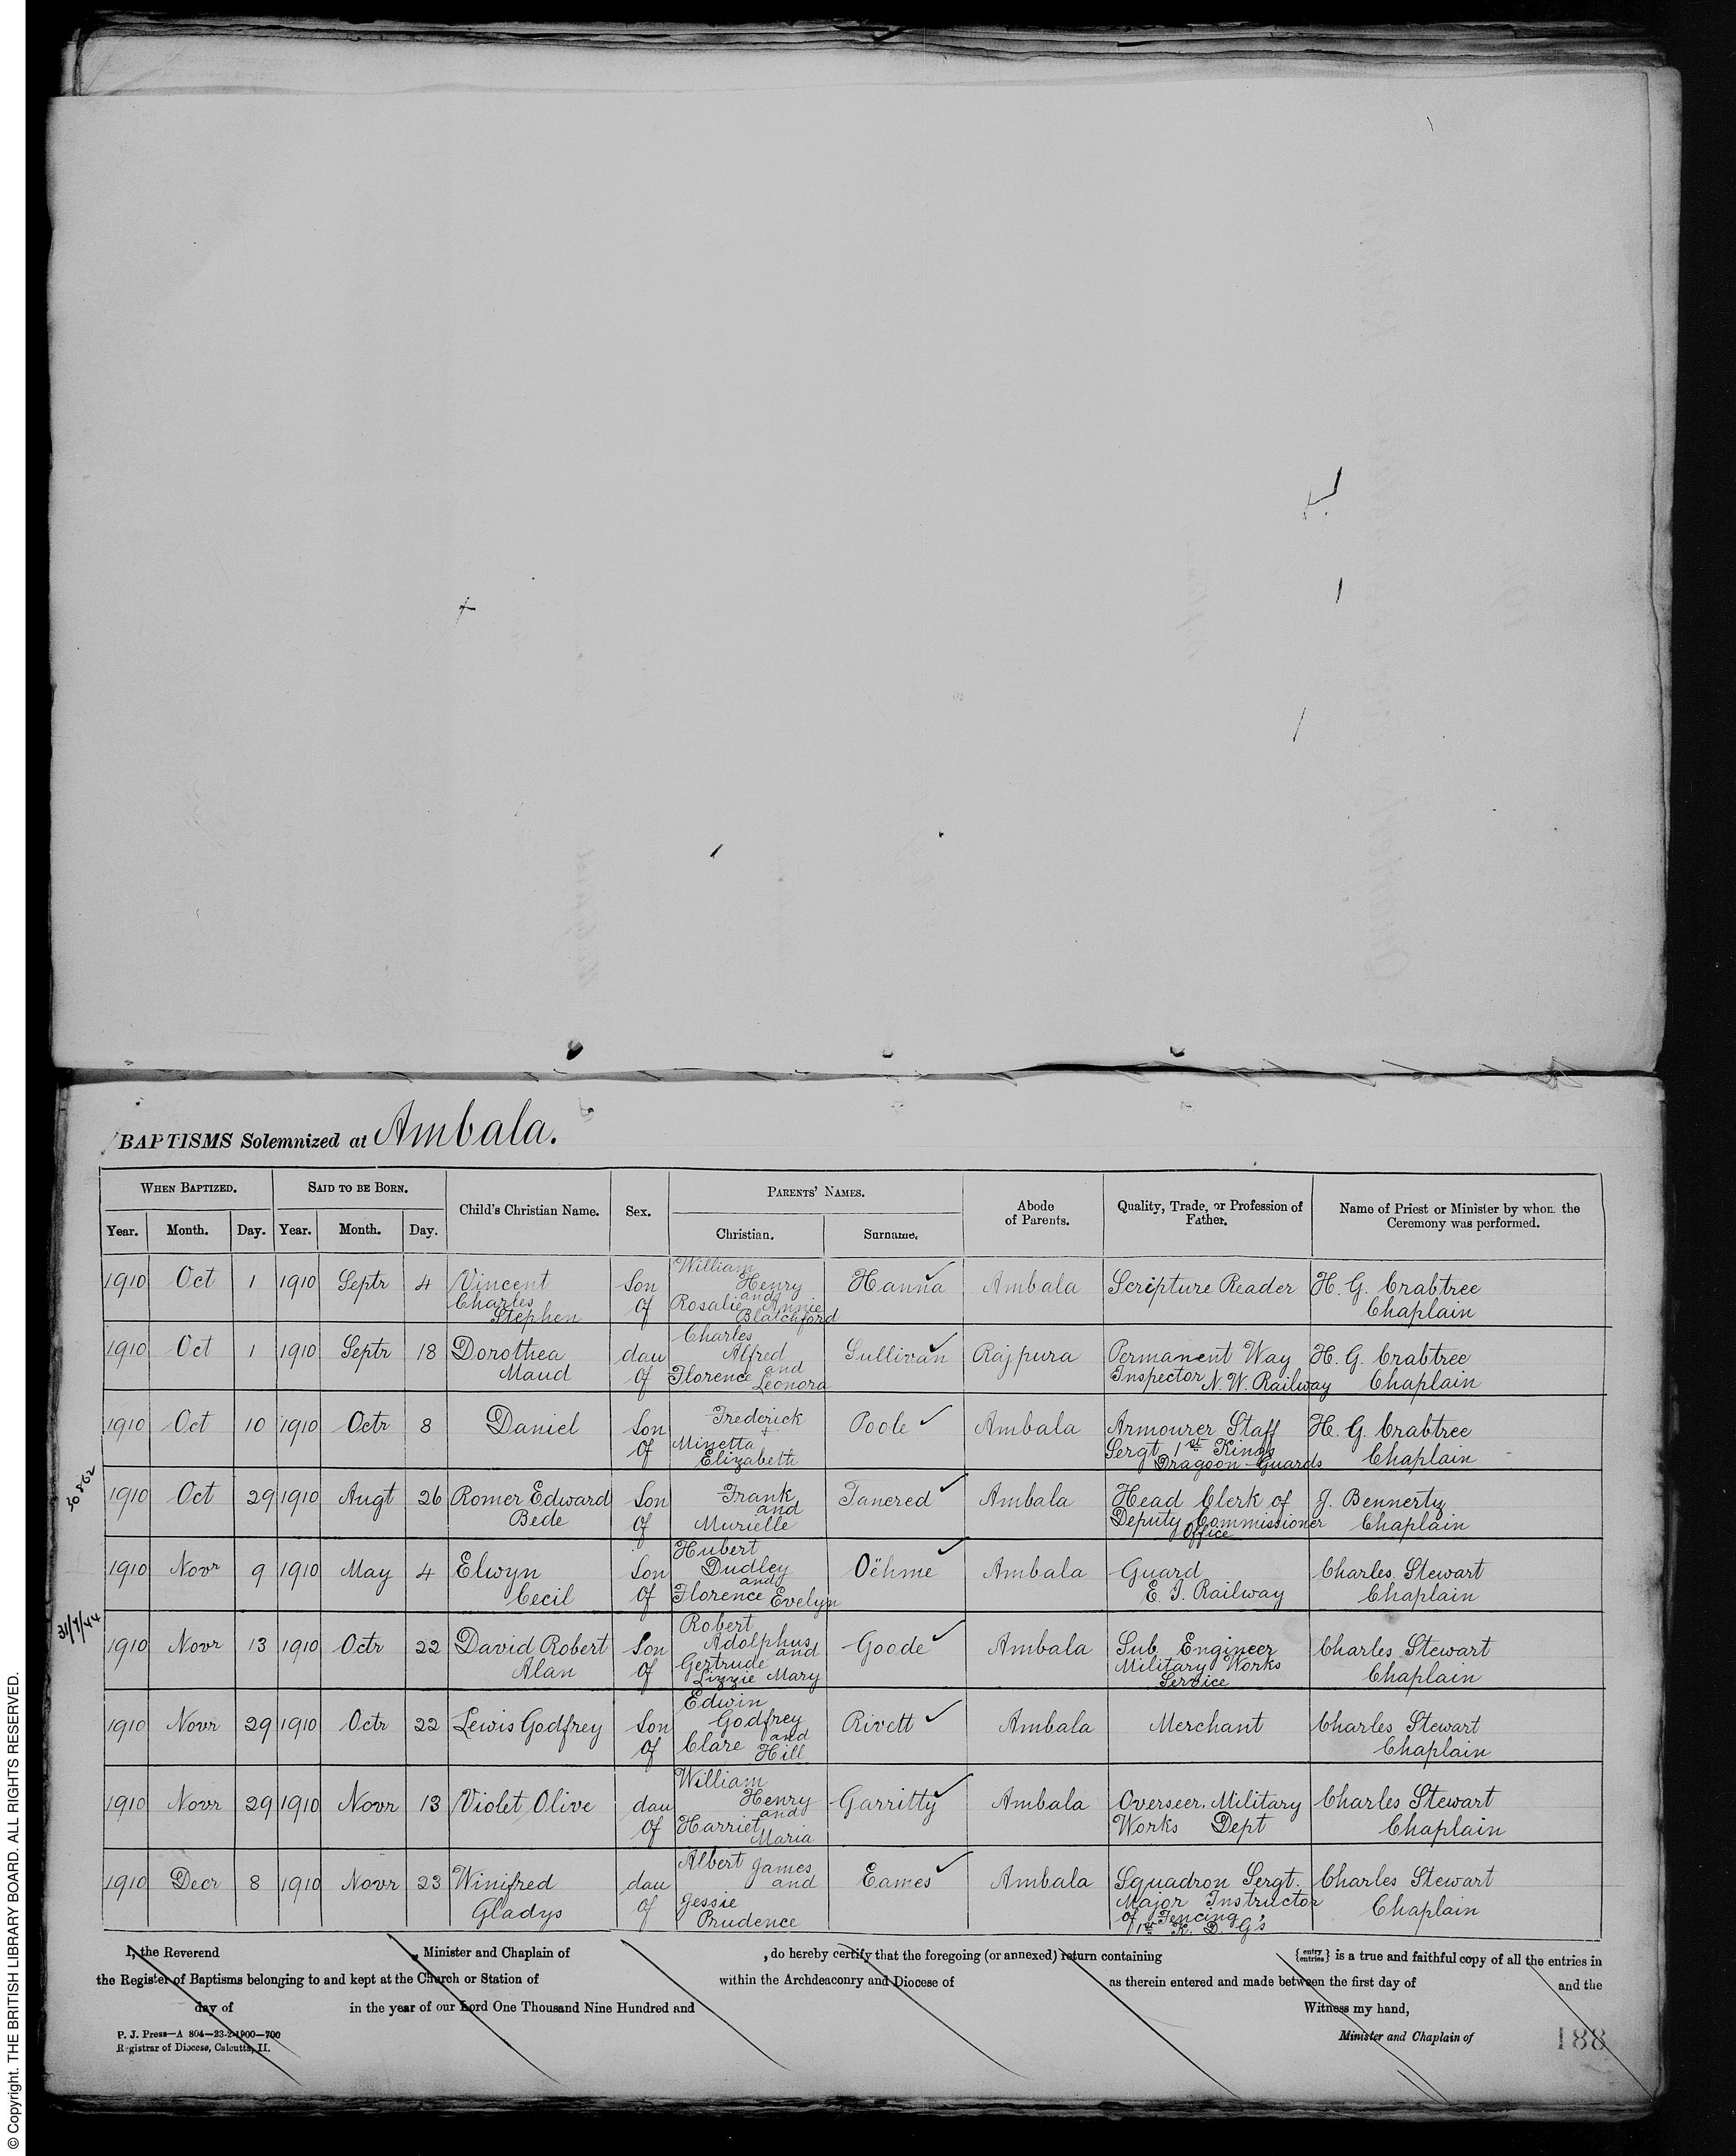 BAPTISMS Solemnized at Ambala.
WHEN BAPTIZED. SAID TO BE BORN. Child's Christian Name. Sex. PARENTS' NAMES. Abode of Parents. Quality, Trade, or Profession of Father. Name of Priest or Minister by whom the Ceremony was performed.
Year. Month. Day. Year. Month. Day. Christian. Surname.
1910 Oct 1 1910 Septr 4 Vincent Charles Stephen Son of William Henry and Rosalie Annie Blatchford Hanna Ambala Scripture Reader H. G. Crabtree Chaplain
1910 Oct 1 1910 Septr 18 Dorothea Maud dau of Charles Alfred and Florence Leonora Sullivan Rajpura Permanent Way Inspector N. W. Railway H. G. Crabtree Chaplain
1910 Oct 10 1910 Octr 8 Daniel Son of Frederick + Minetta Elizabeth Poole Ambala Armourer Staff Sergt 1st Kings Dragoon Guards H. G. Crabtree Chaplain
1910 Oct 29 1910 Augt 26 Romer Edward Bede Son of Frank and Murielle Tancred Ambala Head Clerk of Deputy Commissioner Office J. Bennerty Chaplain
1910 Novr 9 1910 May 4 Elwyn Cecil Son of Hubert Dudley and Florence Evelyn Oëhme Ambala Guard E. I. Railway Charles Stewart Chaplain
31/7/44
1910 Novr 13 1910 Octr 22 David Robert Alan Son of Robert Adolphus and Gertrude Lizzie Mary Goode Ambala Sub Engineer Military Works Service Charles Stewart Chaplain
1910 Novr 29 1910 Octr 22 Lewis Godfrey Son of Edwin Godfrey and Clare Hill Rivett Ambala Merchant Charles Stewart Chaplain
1910 Novr 29 1910 Novr 13 Violet Olive dau of William Henry and Harriet Maria Garritty Ambala Overseer. Military Works Dept Charles Stewart Chaplain
1910 Decr 8 1910 Novr 23 Winifred Gladys dau of Albert James and Jessie Prudence Eames Ambala Squadron Sergt. Major Instructor of Fencing 1st K. D. G's Charles Stewart Chaplain
I, the Reverend , Minister and Chaplain of , do hereby certify that the foregoing (or annexed) return containing {entry entries} is a true and faithful copy of all the entries in
the Register of Baptisms belonging to and kept at the Church or Station of within the Archdeaconry and Diocese of as therein entered and made between the first day of and the
day of in the year of our Lord One Thousand Nine Hundred and Witness my hand,
P. J. Press—A 804—23-2-1900—700 Minister and Chaplain of
Registrar of Diocese, Calcutta, II.
188
© Copyright. THE BRITISH LIBRARY BOARD. ALL RIGHTS RESERVED.